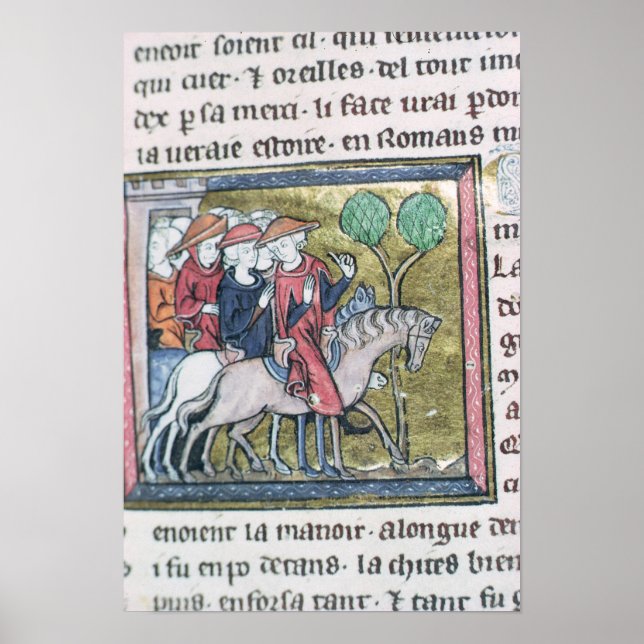 encoir soient cil · qui
qui cuer · ⁊ oreilles · del tout
dex p sa merci · li face urai pdon
la ueraie estoire · en Romans
m
La
do
m
a
enoient la manoir · alongue
i fu en po detans · la chites bien
puis · en forsa tant · ⁊ tant fu